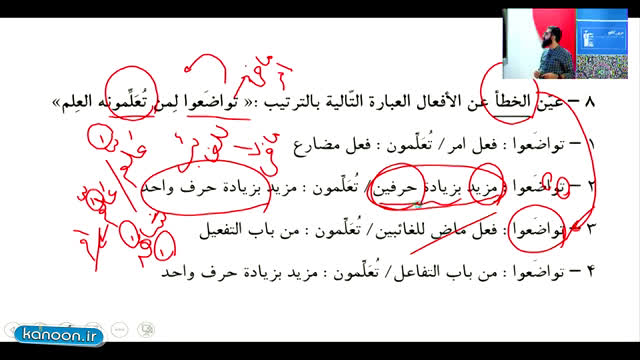 ۸ – عیّن الخطأ عن الأفعال العبارة التّالیة بالترتیب :« تواضَعوا لِمن تُعَلِّمونه العِلم»
۱ – تواضَعوا : فعل امر / تُعَلِّمون : فعل مضارع
۲ – تواضَعوا : مزید بزیادة حرفین / تُعَلِّمون : مزید بزیادة حرف واحد
۳ – تواضَعوا : فعل ماضٍ للغائبین / تُعَلِّمون : من باب التفعیل
۴ – تواضَعوا : من باب التفاعل / تُعَلِّمون : مزید بزیادة حرف واحد
kanoon.ir